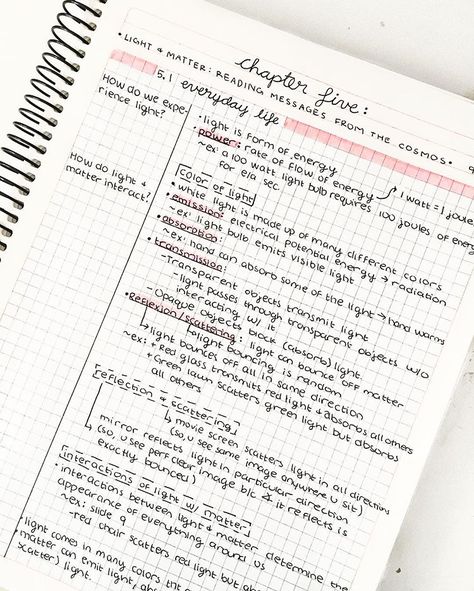 chapter five:
• LIGHT & MATTER: READING MESSAGES FROM THE COSMOS •
5.1 everyday life
How do we expe-
rience light?
• light is form of energy
• power: rate of flow of energy
↳ 1 watt = 1 joule
~ex: a 100 watt light bulb requires 100 joules of energy
for ea sec.
How do light &
matter interact?
color of light
• white light is made up of many different colors
• emission: electrical potential energy → radiation
~ex: light bulb emits visible light
• absorption:
~ex: hand can absorb some of the light → hand warms
• transmission:
-Transparent objects transmit light
-light passes through transparent objects w/o
interacting w/ it
-Opaque objects block (absorb) light.
• Reflexion/scattering: light can bounce off matter
↳ light bouncing is random
↳ light bounces off all in same direction
~ex: + Red glass transmits red light & absorbs all others
+ Green lawn scatters green light but absorbs
all others
reflection & scattering
↳ movie screen scatters light in all directions
(so, u see same image anywhere u sit)
mirror reflects light in particular direction
(so, u see perf clear image b/c ∡ it reflects is
exactly bounced)
interactions of light w/ matter
• interactions between light & matter determine the
appearance of everything around us
~ex: slide 9
-red chair scatters red light but
• light comes in many colors
• matter can emit light,
scatter) light.